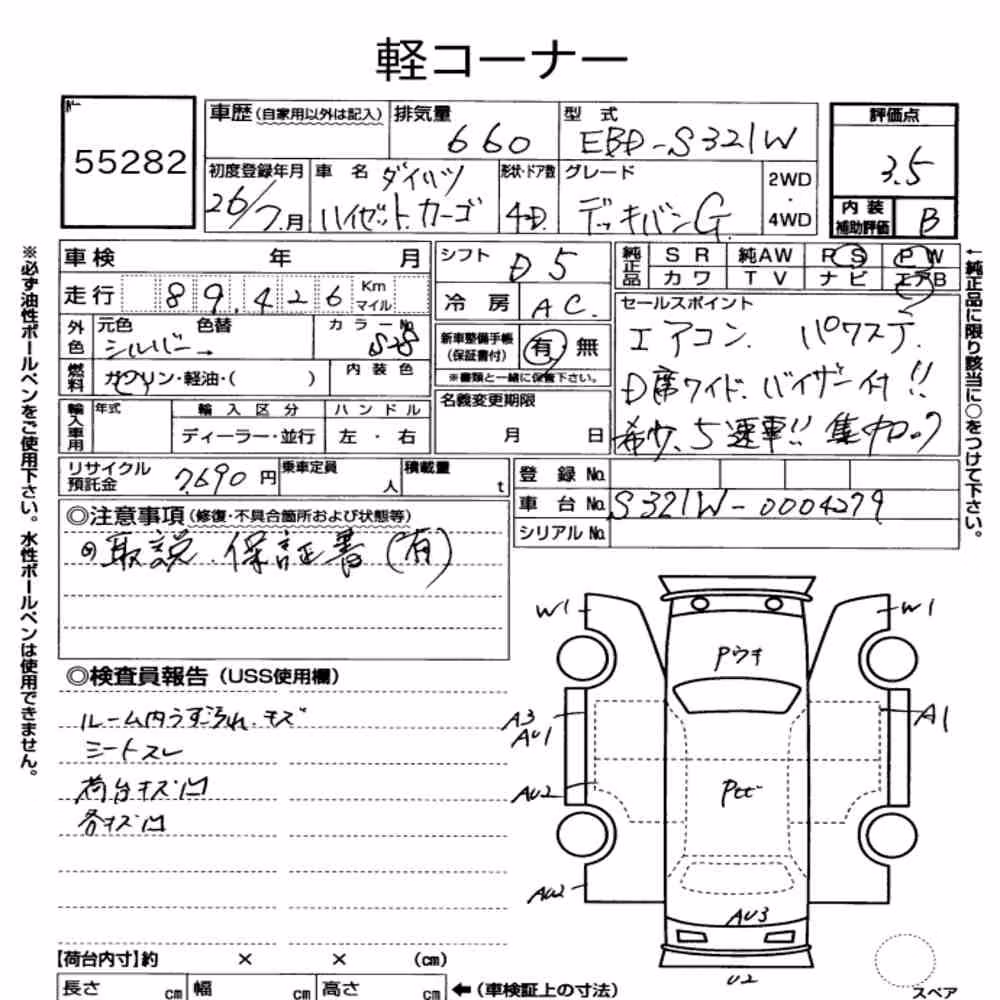 軽コーナー
55282
車歴(自家用以外は記入) 排気量 型式 評価点
660 EBD-S321W 3.5
初度登録年月 車名 形状・ドア数 グレード 2WD・4WD 内装補助評価
26/7月 ダイハツ ハイゼットカーゴ 4D. デッキバンG B
※必ず油性ボールペンをご使用下さい。水性ボールペンは使用できません。
←純正品に限り該当に○をつけて下さい。
車検 年 月
走行 89,426 Km マイル
外色 元色 色替 カラーNo.
シルバー→ S28
燃料 ガソリン・軽油・( ) 内装色
輸入車用 年式 輸入区分 ハンドル
ディーラー・並行 左・右
シフト D5
冷房 AC.
新車整備手帳(保証書付) 有 無
※書類と一緒に保管下さい。
名義変更期限
月 日
純正品 SR 純AW PS PW
カワ TV ナビ エアB
セールスポイント
エアコン. パワステ.
D席ワイド. バイザー付!!
希少、5速車!! 集中ロック
リサイクル預託金 7,690円 乗車定員 人 積載量 t
登録No.
車台No. S321W-0004279
シリアルNo.
◎注意事項(修復・不具合箇所および状態等)
◎取説.保証書(有)
◎検査員報告(USS使用欄)
ルーム内うす汚れ.キズ
シートスレ
荷台キズ凹
各キズ凹
W1 W1
Pウキ
A3 A1
AU1
AU2
AU2
AU3
U2
スペア
【荷台内寸】約 × × (cm)
長さ cm 幅 cm 高さ cm ←(車検証上の寸法)